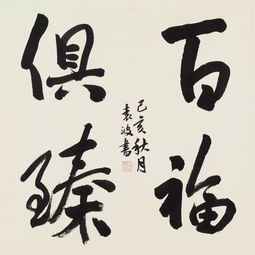 百福
俱臻
己亥秋月
袁波書